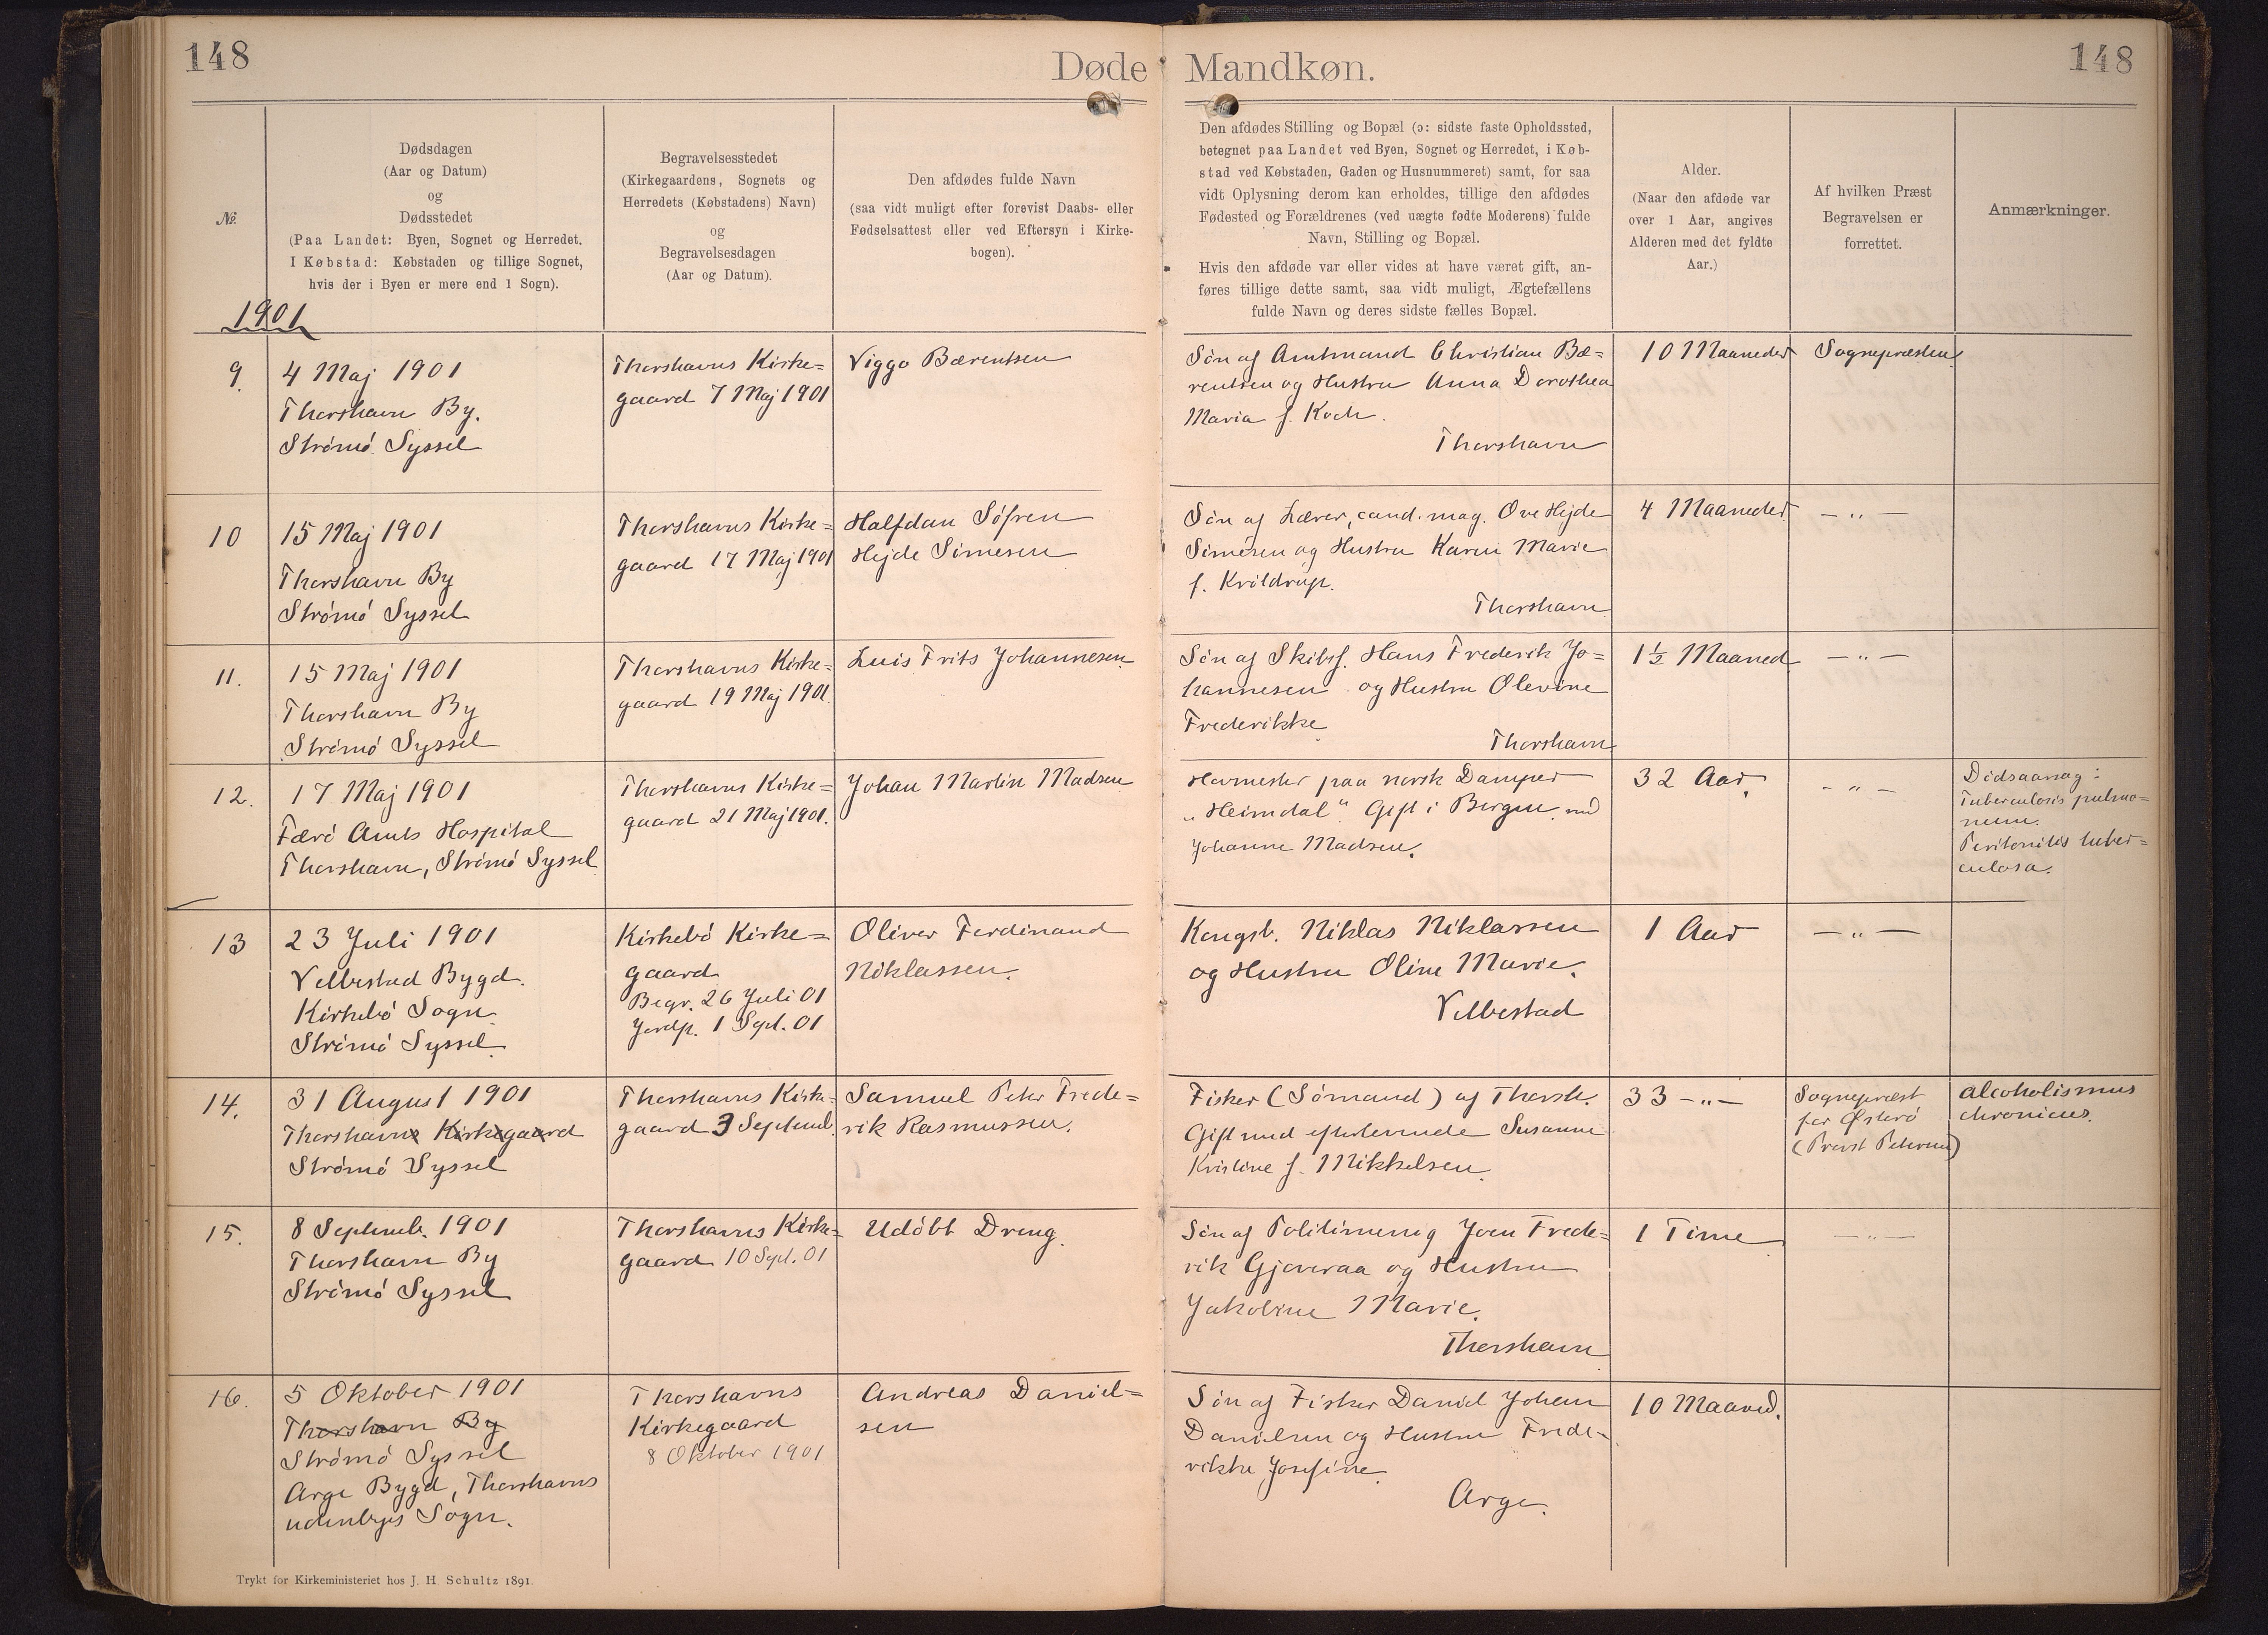 148
Døde Mandkøn.
148
№
Dødsdagen
(Aar og Datum)
og
Dødsstedet
(Paa Landet: Byen, Sognet og Herredet.
I Købstad: Købstaden og tillige Sognet,
hvis der i Byen er mere end 1 Sogn).
Begravelsesstedet
(Kirkegaardens, Sognets og
Herredets (Købstadens) Navn)
og
Begravelsesdagen
(Aar og Datum).
Den afdødes fulde Navn
(saa vidt muligt efter forevist Daabs- eller
Fødselsattest eller ved Eftersyn i Kirke-
bogen).
Den afdødes Stilling og Bopæl (ɔ: sidste faste Opholdssted,
betegnet paa Landet ved Byen, Sognet og Herredet, i Køb-
stad ved Købstaden, Gaden og Husnummeret) samt, for saa
vidt Oplysning derom kan erholdes, tillige den afdødes
Fødested og Forældrenes (ved uægte fødte Moderens) fulde
Navn, Stilling og Bopæl.
Hvis den afdøde var eller vides at have været gift, an-
føres tillige dette samt, saa vidt muligt, Ægtefællens
fulde Navn og deres sidste fælles Bopæl.
Alder.
(Naar den afdøde var
over 1 Aar, angives
Alderen med det fyldte
Aar.)
Af hvilken Præst
Begravelsen er
forrettet.
Anmærkninger.
1901
9.
4 Maj 1901
Thorshavn By.
Strömö Syssel
Thorshavns Kirke=
gaard 7 Maj 1901
Viggo Bærentsen
Søn af Amtmand Christian Bæ=
rentsen og Hustru Anna Dorothea
Maria f. Koch.
Thorshavn
10 Maaneder
Sognepræsten
10
15 Maj 1901
Thorshavn By
Strömö Syssel
Thorshavns Kirke=
gaard 17 Maj 1901
Halfdan Söfren
Hejde Simesen
Søn af Lærer, cand. mag. Ove Hejde
Simesen og Hustru Karen Marie
f. Kröldrup.
Thorshavn
4 Maaneder
— „ —
11.
15 Maj 1901
Thorshavn By
Strömö Syssel
Thorshavns Kirke=
gaard 19 Maj 1901.
Luis Frits Johannesen
Søn af Skibsf. Hans Frederik Jo=
hannesen og Hustru Olevine
Frederikke
Thorshavn
1½ Maaned
— „ —
12.
17 Maj 1901
Færö Amts Hospital
Thorshavn, Strömö Syssel
Thorshavns Kirke=
gaard 21 Maj 1901.
Johan Martin Madsen
Hovmester paa norsk Damper
„Heimdal“. Gift i Bergen med
Johanne Madsen.
32 Aar.
— „ —
Dödsaarsag:
Tuberculosis pulmo=
num.
Peritonitis tuber=
culosa.
13
23 Juli 1901
Velbestad Bygd.
Kirkebö Sogn
Strömö Syssel
Kirkebö Kirke=
gaard
Begr. 26 Juli 01
Jordp. 1 Sept. 01
Oliver Ferdinand
Niklassen.
Kongsb. Niklas Niklassen
og Hustru Oline Marie.
Velbestad
1 Aar
— „ —
14.
31 August 1901
Thorshavns Kirkegaard
Strömö Syssel
Thorshavns Kirke=
gaard 3 Septemb.
Samuel Peter Frede=
rik Rasmussen.
Fisker (Sömand) af Thorsh.
Gift med efterlevende Susanne
Kristine f. Mikkelsen.
33 — „ —
Sognepræst
for Österö
(Provst Petersen)
alcoholismus
chronicus.
15.
8 Septemb. 1901
Thorshavn By
Strömö Syssel
Thorshavns Kirke=
gaard 10 Sept. 01
Udöbt Dreng.
Søn af Politimenig Joen Frede=
rik Gjoveraa og Hustru
Jakobine Marie.
Thorshavn
1 Time
— „ —
16.
5 Oktober 1901
Thorshavn By
Strömö Syssel
Arge Bygd, Thorshavns
udenbys Sogn.
Thorshavns
Kirkegaard
8 Oktober 1901
Andreas Daniel=
sen
Søn af Fisker Daniel Johan
Danielsen og Hustru Frede=
rikke Josefine
Arge.
10 Maaned.
Trykt for Kirkeministeriet hos J. H Schultz 1891.